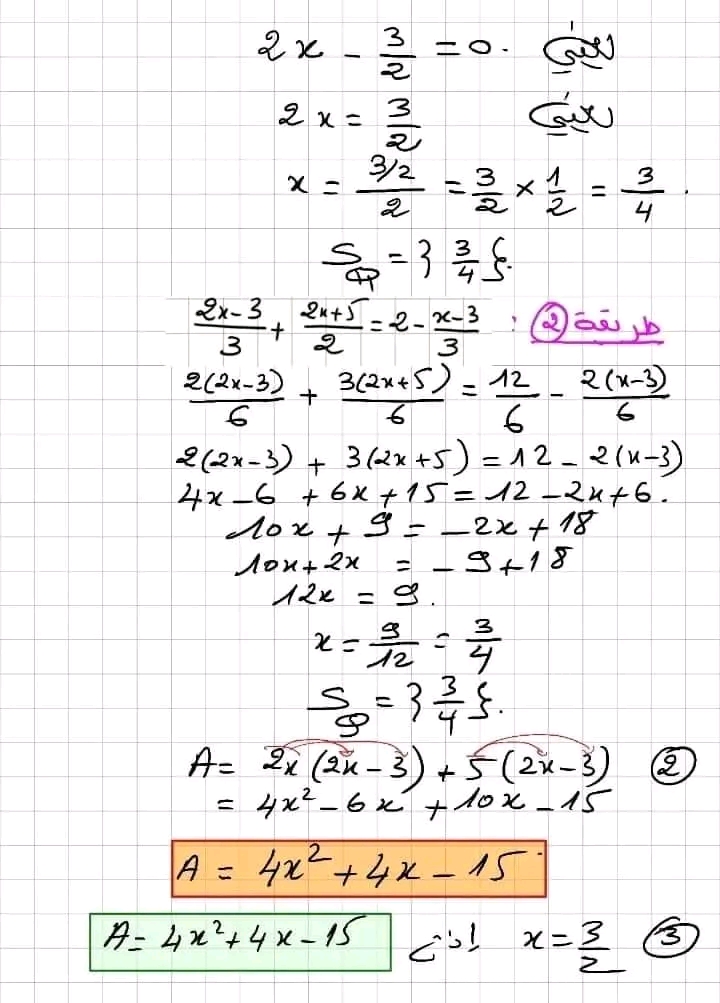 2x - 3/2 = 0. يعني
2x = 3/2 يعني
x = (3/2)/2 = 3/2 × 1/2 = 3/4 .
S_ℝ = } 3/4 {.
(2x-3)/3 + (2x+5)/2 = 2 - (x-3)/3 : طريقة ②
2(2x-3)/6 + 3(2x+5)/6 = 12/6 - 2(x-3)/6
2(2x-3) + 3(2x+5) = 12 - 2(x-3)
4x-6 + 6x+15 = 12 - 2x+6.
10x + 9 = -2x + 18
10x+2x = -9+18
12x = 9.
x = 9/12 = 3/4
S = } 3/4 {.
A = 2x(2x-3) + 5(2x-3) ②
= 4x² - 6x + 10x - 15
A = 4x² + 4x - 15
A = 4x² + 4x - 15 إذن x = 3/2 ③